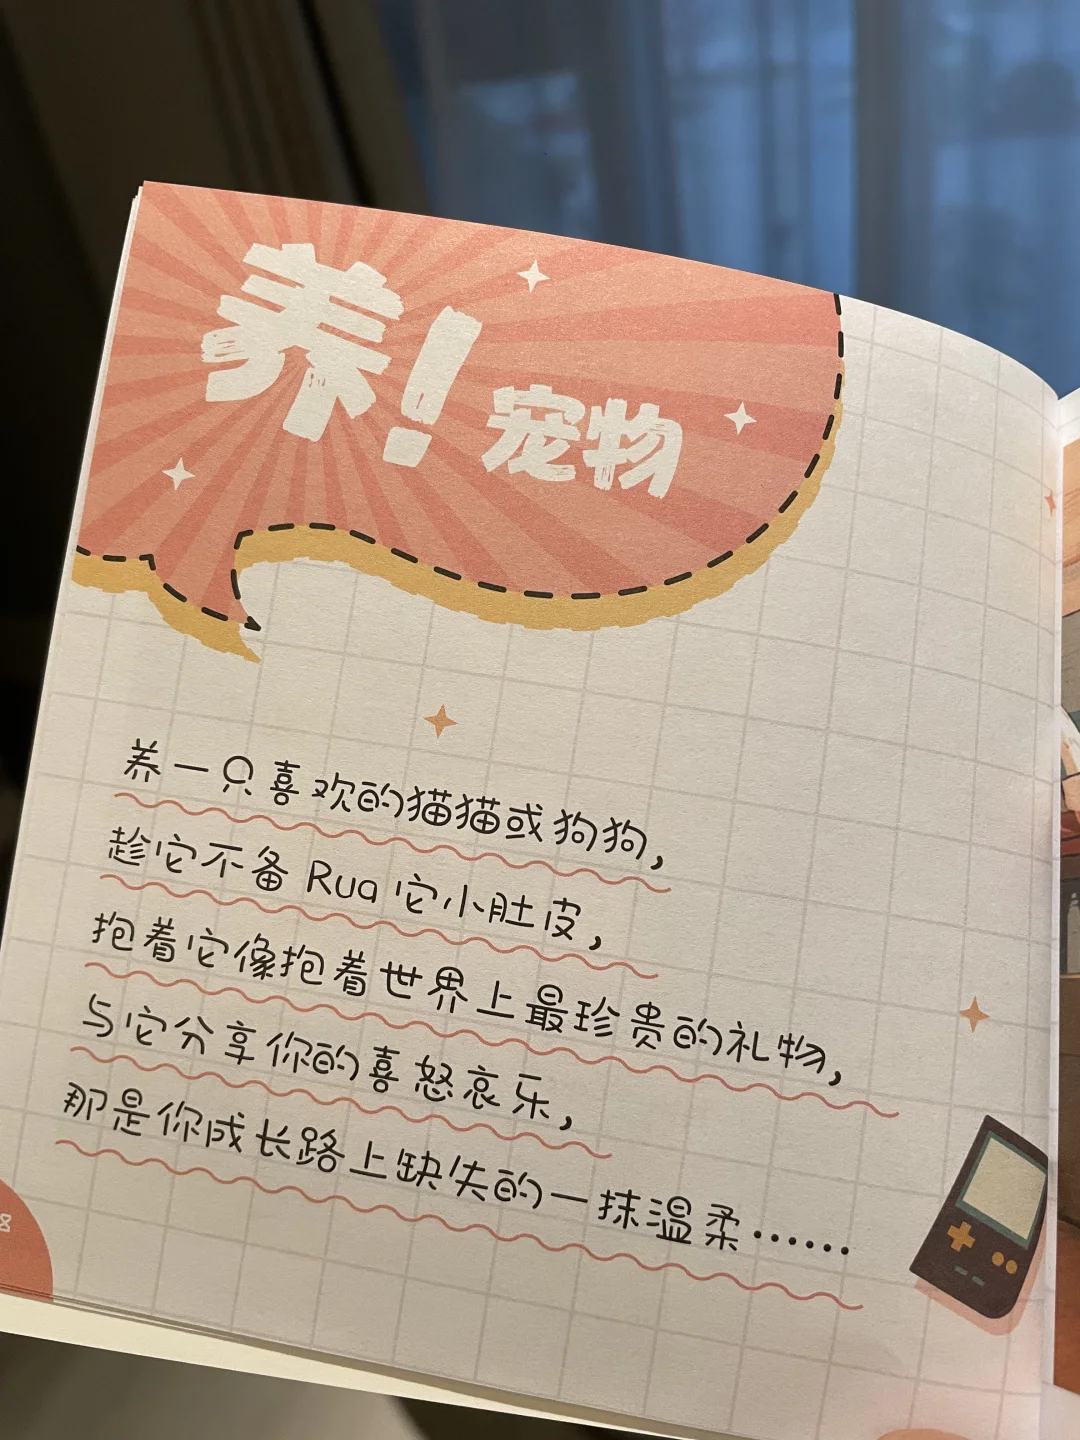 养!宠物
养一只喜欢的猫猫或狗狗，
趁它不备 Rua 它小肚皮，
抱着它像抱着世界上最珍贵的礼物，
与它分享你的喜怒哀乐，
那是你成长路上缺失的一抹温柔……